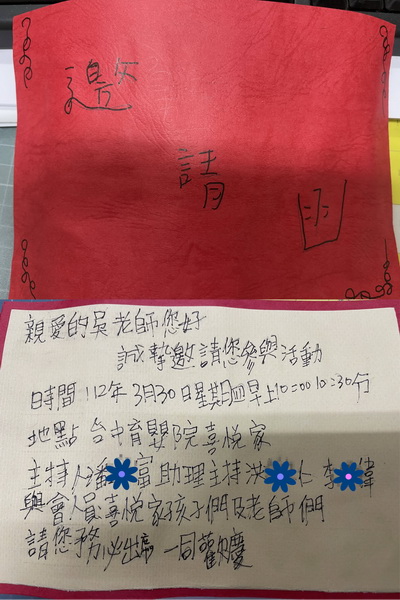 邀
請
函
親愛的吳老師您好
誠摯邀請您參與活動
日時間112年3月30日星期四早上10:00 10:30分
地點 台中育嬰院喜悅家
主持人潘富助理主持洪仁 李偉
與會人員喜悅家孩子們及老師們
請您務必出席 一同歡慶